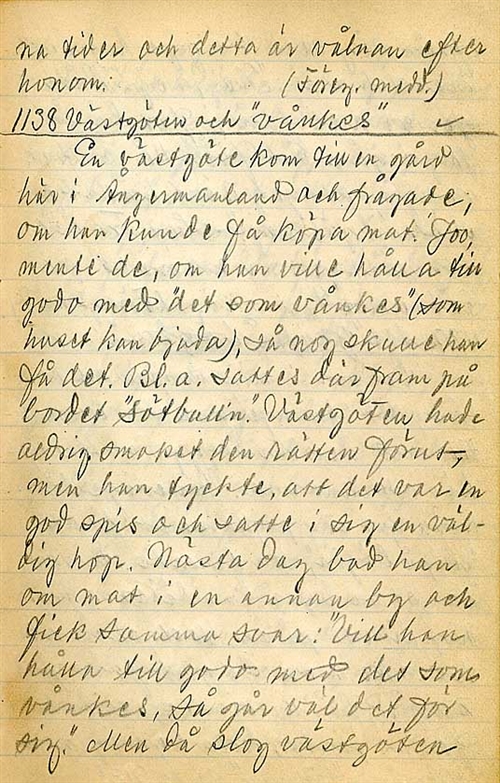 na tider och detta är vålnan efter
honom. (Föreg. medd.)
1138 Västgöten och "vånkes"
En västgöte kom till en gård
här i Ångermanland och frågade,
om han kunde få köpa mat. Joo,
mente de, om han ville hålla till
godo med "det som vånkes" (som
huset kan bjuda), så nog skulle han
få det. Bl. a. sattes där fram på
bordet "sötbulln". Västgöten hade
aldrig smakat den rätten förut,
men han tyckte, att det var en
god spis och satte i sig en väl-
dig hop. Nästa dag bad han
om mat i en annan by och
fick samma svar: "Vill han
hålla till godo med det som
vånkes, så går väl det för
sig." Men då slog västgöten